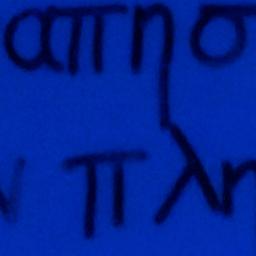 απησ
ν πλη